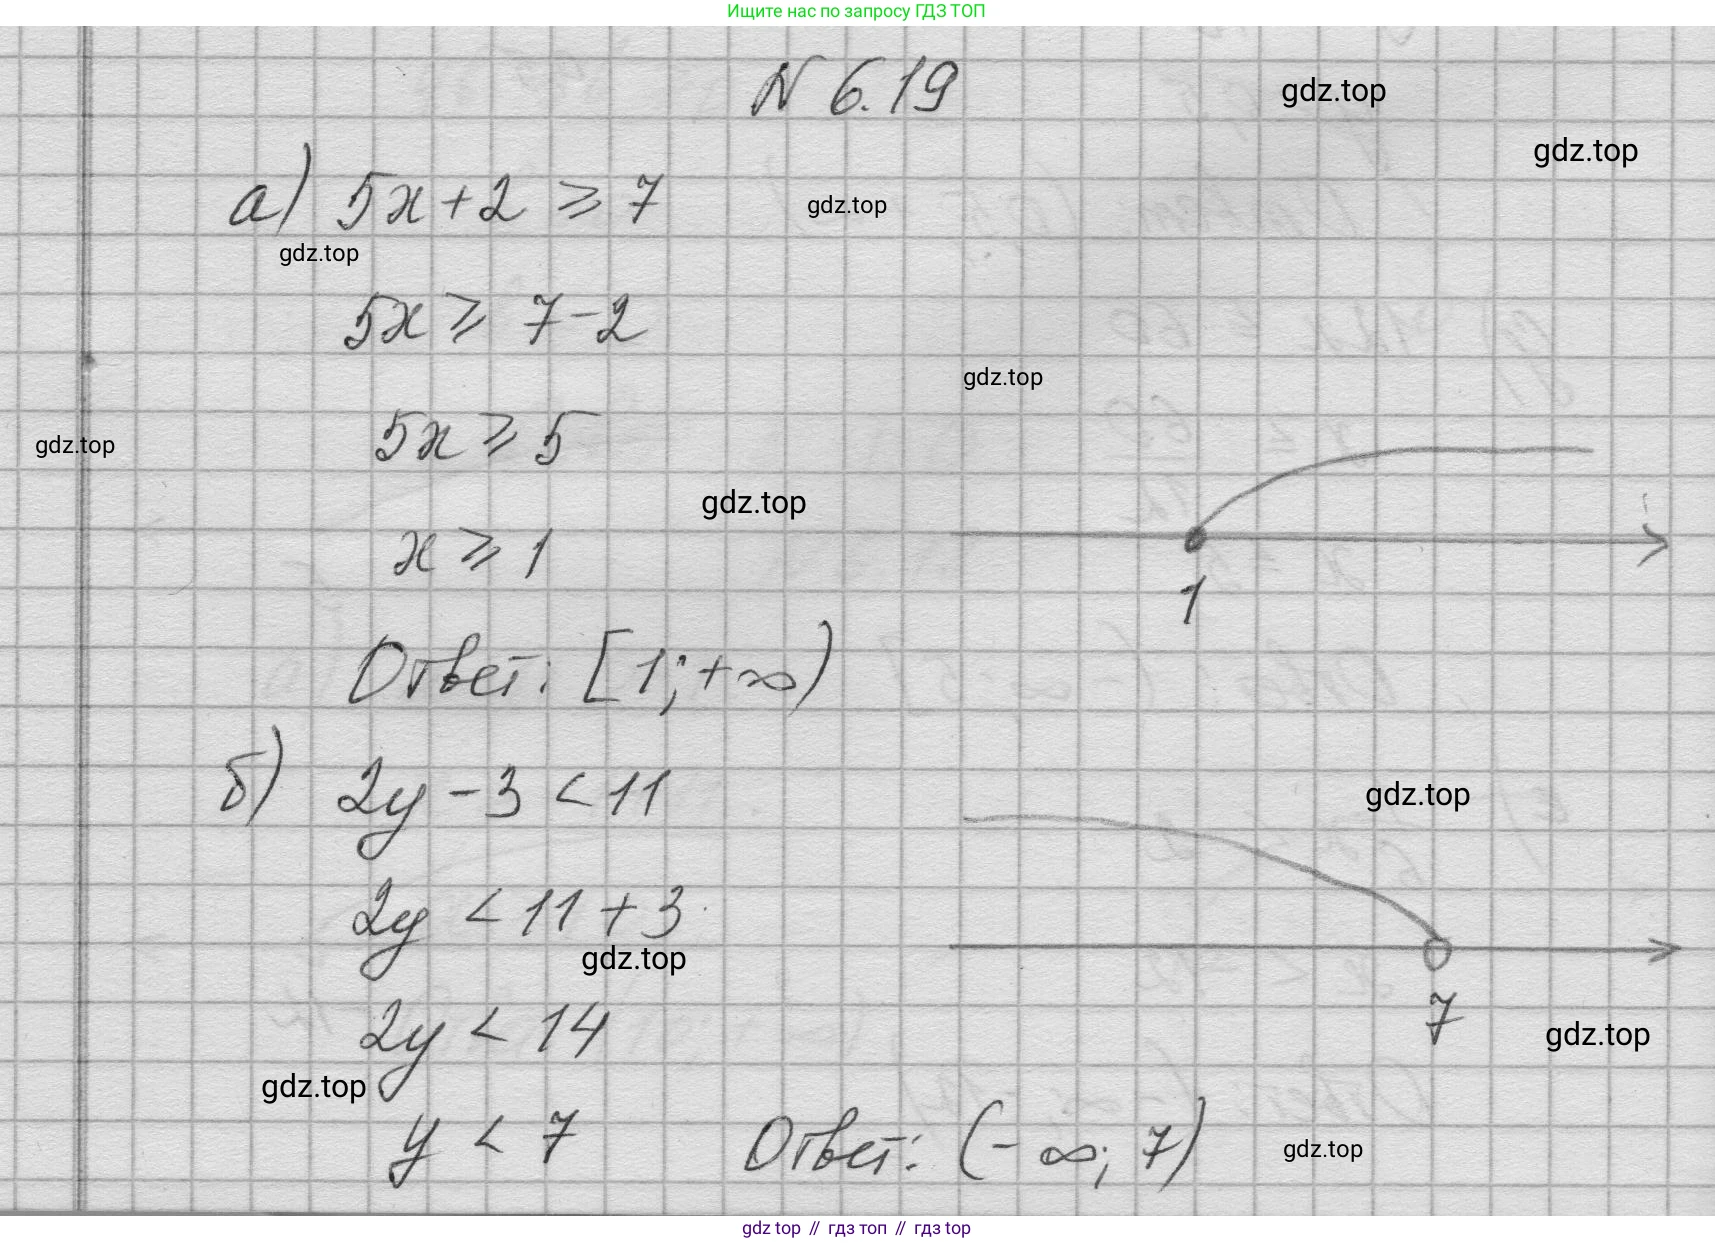 Ищите нас по запросу ГДЗ ТОП
N 6.19
gdz.top
gdz.top
а) 5x + 2 ⩾ 7
gdz.top
gdz.top
5x ⩾ 7 - 2
gdz.top
5x ⩾ 5
gdz.top
gdz.top
x ⩾ 1
1
Ответ: [1; +∞)
б) 2y - 3 < 11
gdz.top
2y < 11 + 3
gdz.top
2y < 14
7
gdz.top
gdz.top
y < 7
Ответ: (-∞; 7)
gdz.top
gdz top // гдз топ // гдз top